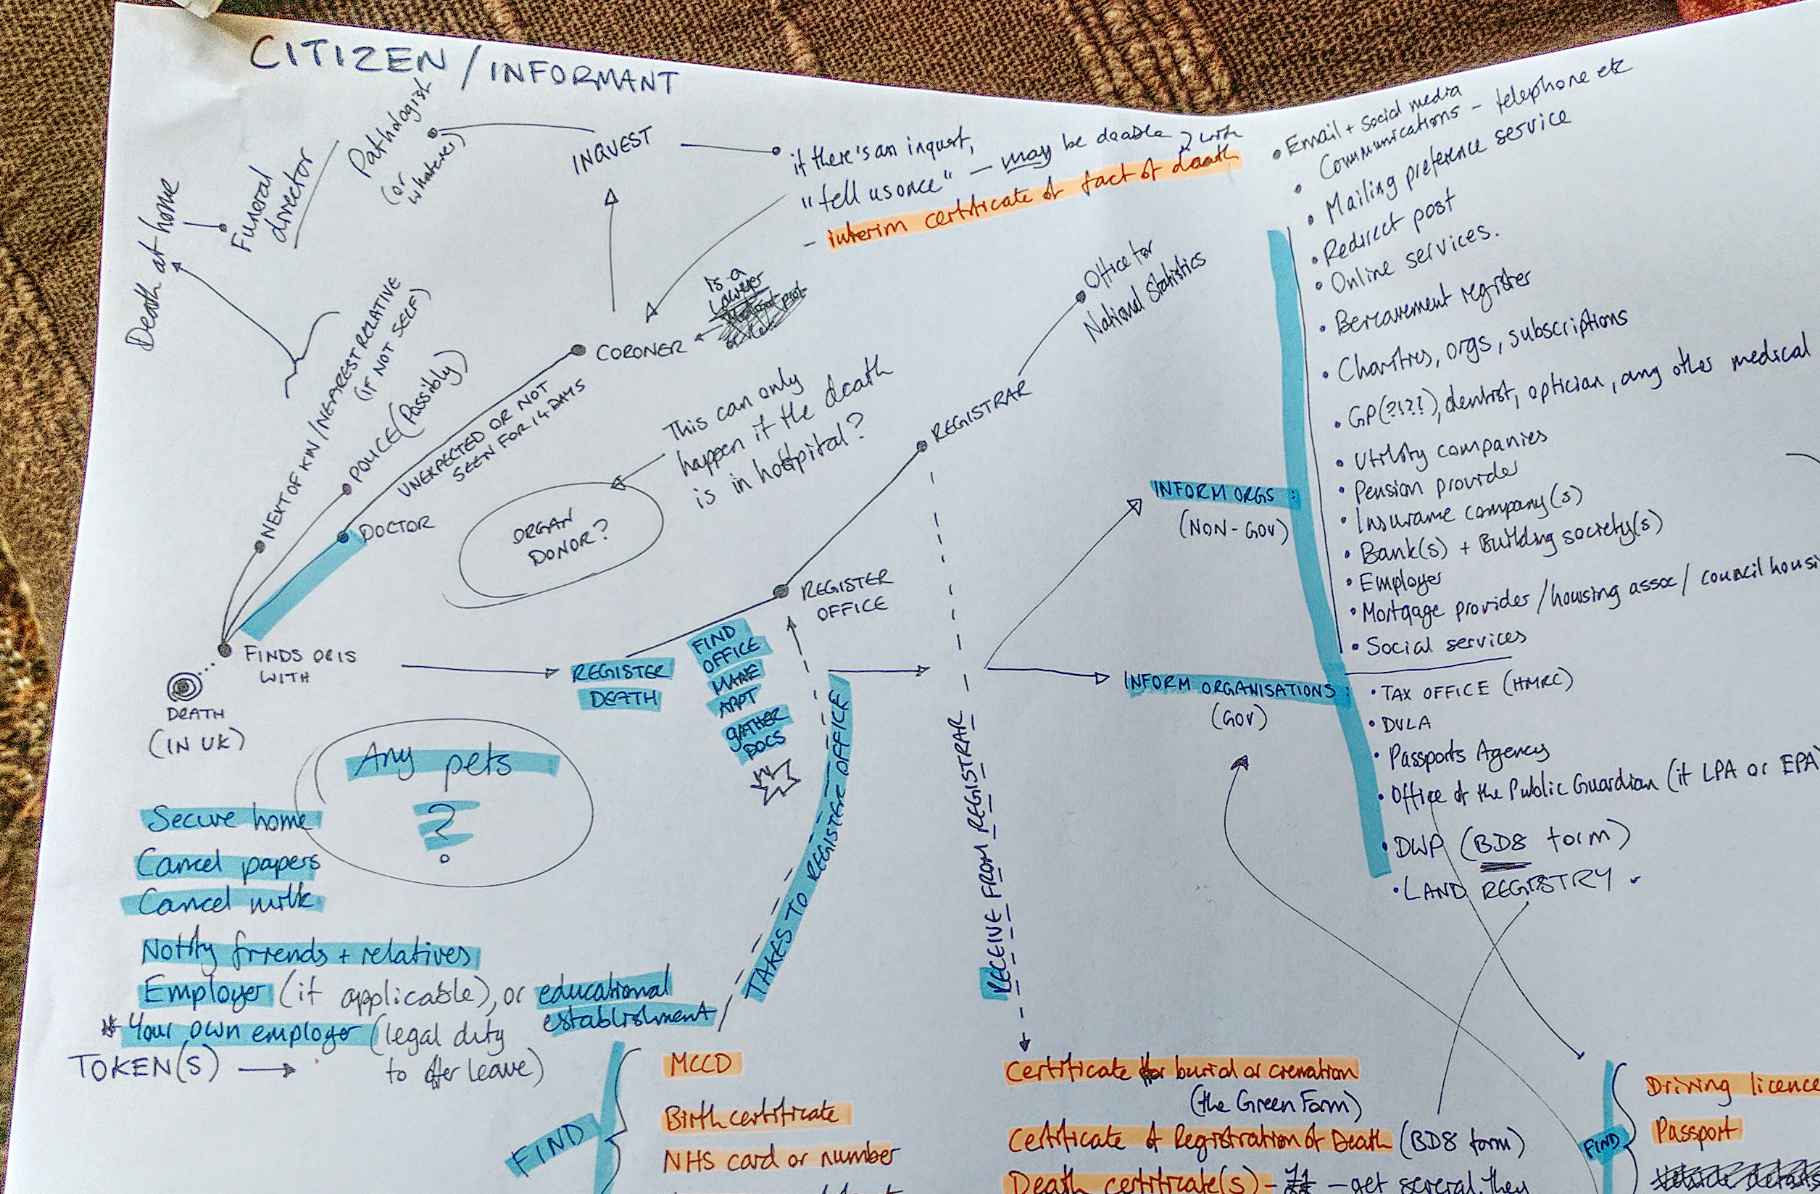 CITIZEN / INFORMANT
Pathologist
(or
whatever)
INQUEST
if there's an inquest,
"tell us once" – may be doable with
– interim certificate of fact of death
Death at home
Funeral
director
NEXT OF KIN / NEAREST RELATIVE
(IF NOT SELF)
POLICE (Possibly)
DOCTOR
UNEXPECTED OR NOT
SEEN FOR 14 DAYS
CORONER
IS a
Lawyer
This can only
happen if the death
is in hospital?
ORGAN
DONOR?
REGISTRAR
Office for
National Statistics
REGISTER
OFFICE
FINDS OR IS
WITH
DEATH
(IN UK)
REGISTER
DEATH
FIND
OFFICE
MAKE
APPT
GATHER
DOCS
TAKES TO REGISTER OFFICE
RECEIVE FROM REGISTRAR
INFORM ORGS :
(NON-GOV)
• Email + Social media
• Communications – telephone etc
• Mailing preference service
• Redirect post
• Online services.
• Bereavement register
• Charities, orgs, subscriptions
• GP(?!?!), dentist, optician, any other medical
• Utility companies
• Pension provider
• Insurance company(s)
• Bank(s) + Building society(s)
• Employer
• Mortgage provider / housing assoc / council housi
• Social services
INFORM ORGANISATIONS :
(GOV)
• TAX OFFICE (HMRC)
• DVLA
• Passports Agency
• Office of the Public Guardian (if LPA or EPA
• DWP (BD8 form)
• LAND REGISTRY
Any pets
?
Secure home
Cancel papers
Cancel milk
Notify friends + relatives
Employer (if applicable), or educational
establishment
* Your own employer (legal duty
to offer leave)
TOKEN(S)
FIND
MCCD
Birth certificate
NHS card or number
Certificate for burial or cremation
(the Green Form)
Certificate of Registration of Death (BD8 form)
Death certificate(s) – – get several, they
FIND
Driving licence
Passport